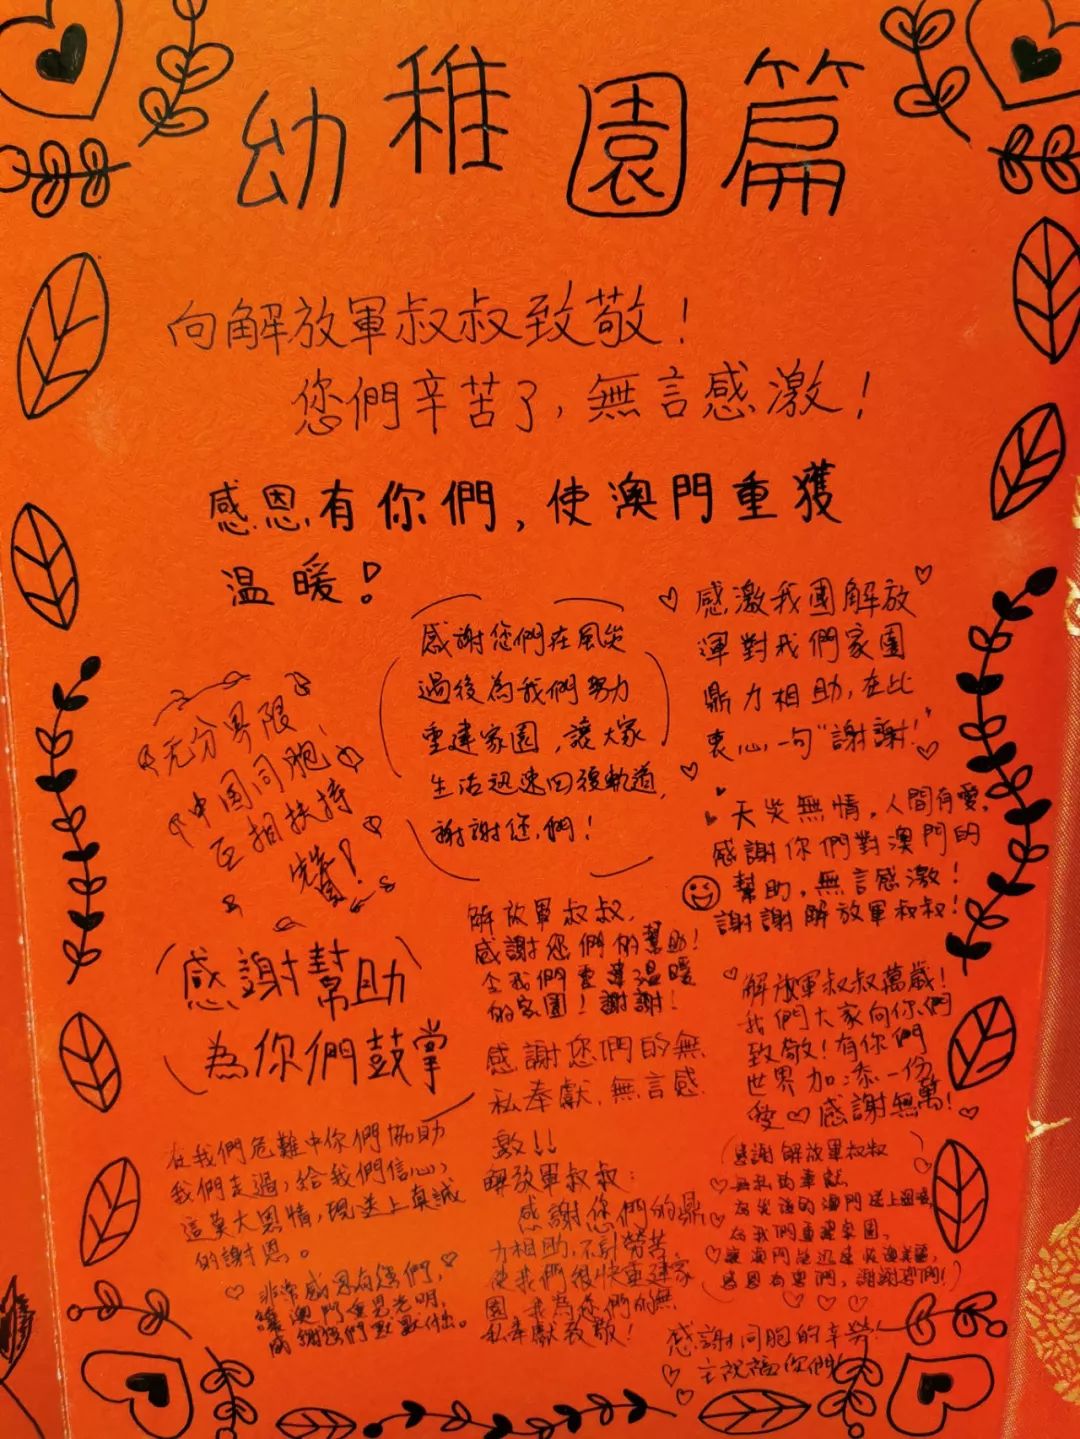 幼稚園篇
向解放軍叔叔致敬!
您們辛苦了,無言感激!
感恩有你們,使澳門重獲
溫暖!
感謝您們在風災
過後為我們努力
重建家園,讓大家
生活迅速回復軌道,
謝謝您們!
感激我國解放
渾對我們家園
鼎力相助,在此
衷心一句"謝謝!"
无分界限,
中国同胞
互相扶持
天災無情,人間有愛,
感謝你們對澳門的
幫助,無言感激!
謝謝解放軍叔叔!
感謝幫助
為你們鼓掌
解放軍叔叔,
感謝您們的幫助!
令我們重建溫暖
的家園!謝謝!
解放軍叔叔萬歲!
我們大家向你們
致敬!有你們
世界加添一份
愛♡感謝無萬!
感謝您們的無
私奉獻,無言感
激!!
在我們危難中你們協助
我們走過,給我們信心,
這莫大恩情,現送上真誠
的謝恩。
解放軍叔叔:
感謝您們的鼎
力相助,不計勞苦
使我們很快重建家
園,我為您們的無
私奉獻致敬!
感謝解放軍叔叔
無私的奉獻
為災後的澳門送上溫暖,
為我們重建家園,
非常感恩有您們,
讓澳門重見光明,
感謝您們默默付出。
感謝同胞的辛勞!
主祝福你們!